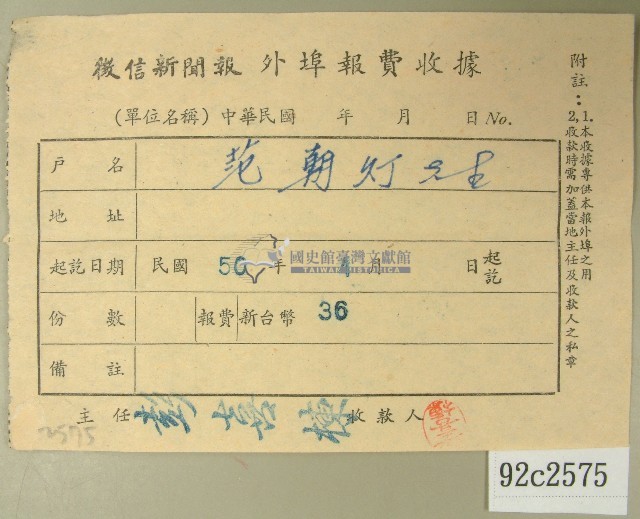 徵信新聞報 外埠報費收據
(單位名稱) 中華民國 年 月 日 No.
戶名 范朝灯先生
地址
起訖日期 民國 50 年 4 月 日 起訖
份數 報費 新台幣 36
備註
主任 收款人
附註：
1.本收據專供本報外埠之用
2,收款時需加蓋當地主任及收款人之私章
國史館臺灣文獻館
TAIWAN HISTORICA
2575
92c2575